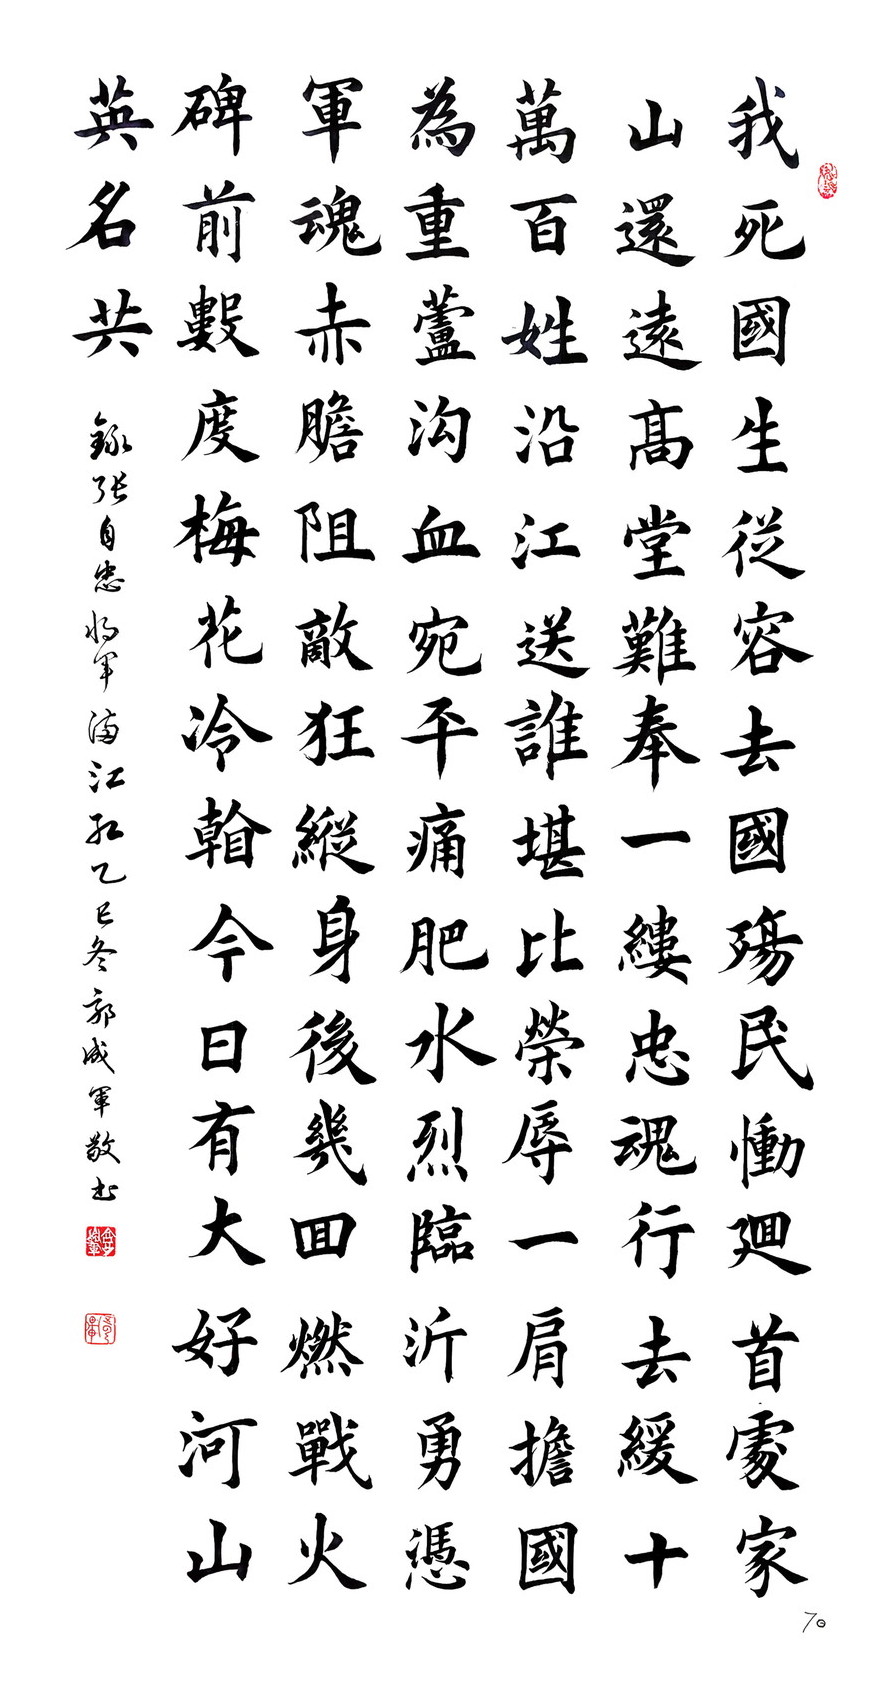 我死國生從容去國殤民慟廻首處家
山還遠高堂難奉一縷忠魂行去緩十
萬百姓沿江送誰堪比榮辱一肩擔國
為重蘆沟血宛平痛肥水烈臨沂勇憑
軍魂赤膽阻敵狂縱身後幾回燃戰火
碑前數度梅花冷翰今日有大好河山
英名共
錄张自忠将军满江红乙巳冬郭成軍敬书